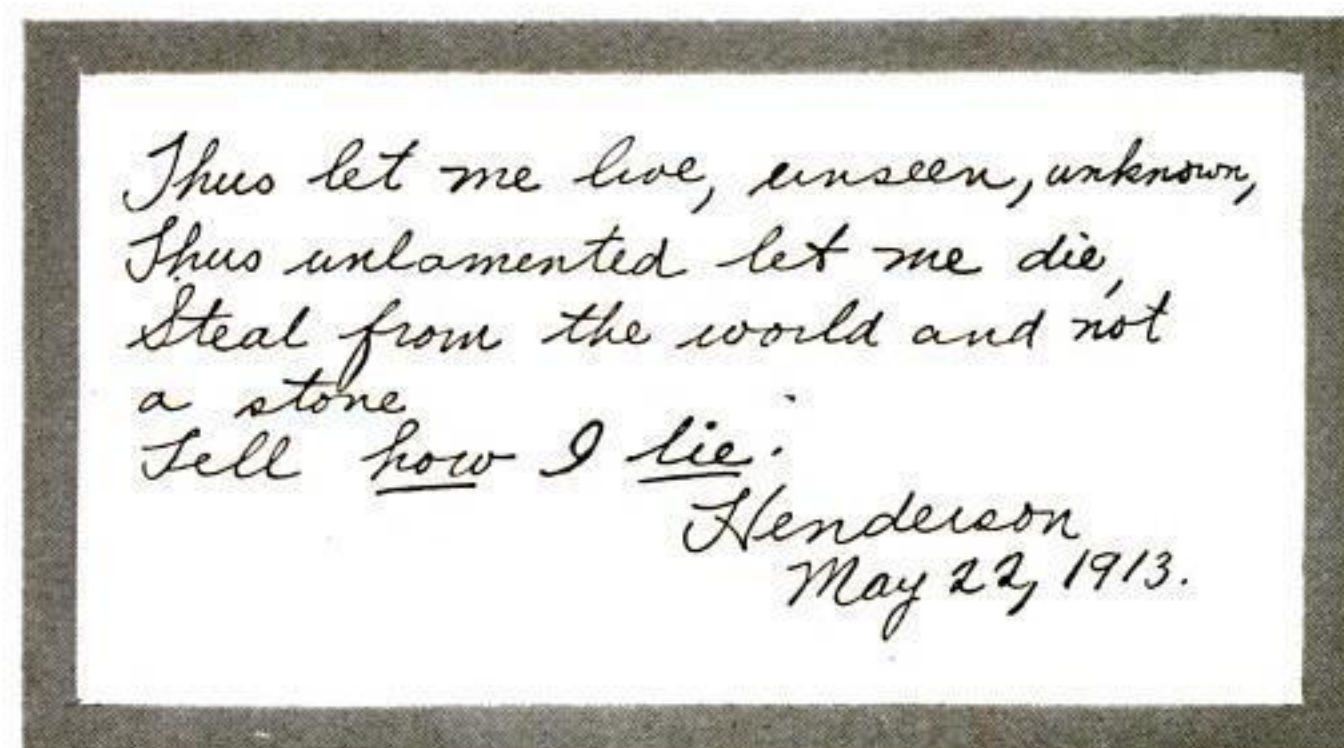 Thus let me live, unseen, unknown,
Thus unlamented let me die,
Steal from the world and not
a stone
Tell how I lie.
Henderson
May 22, 1913.